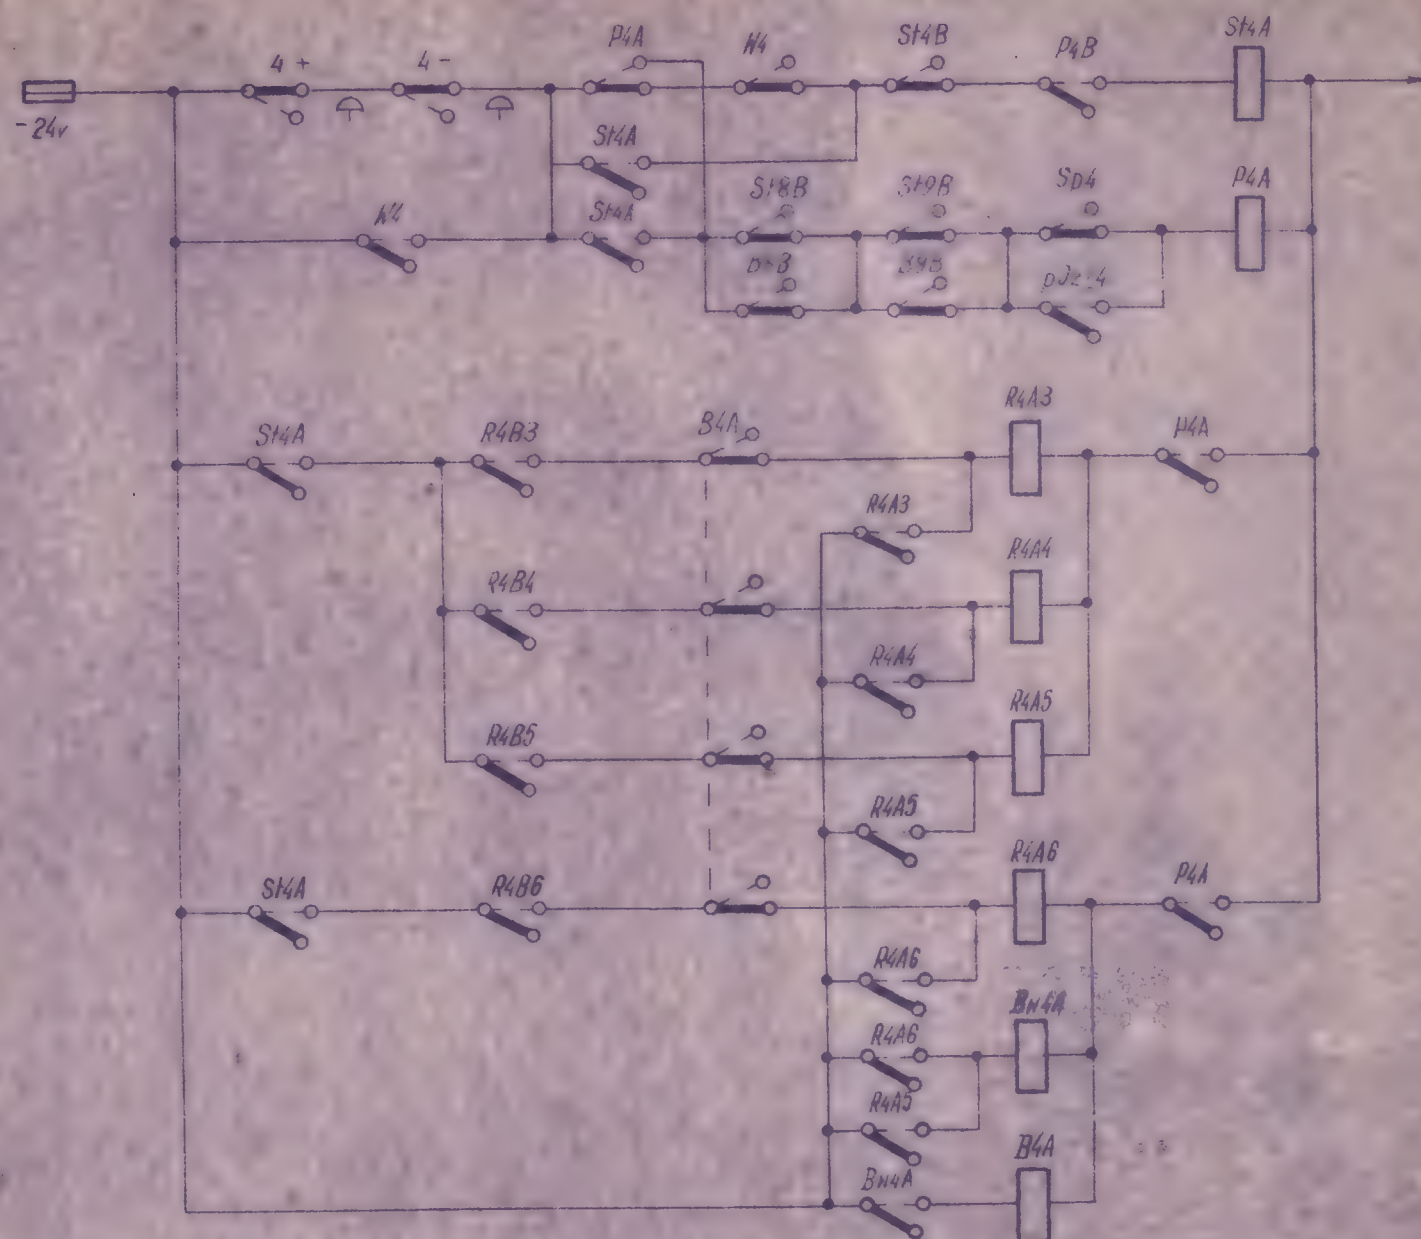 4 +
4 -
P4A
N4
St4B
P4B
St4A
-24v
St4A
St8B
St9B
Sp4
P4A
N4
St4A
B9B
St4A
R4B3
B4A
R4A3
P4A
R4A3
R4B4
R4A4
R4A4
R4B5
R4A5
R4A5
St4A
R4B6
R4A6
P4A
R4A6
Bn4A
R4A6
R4A5
B4A
Bn4A